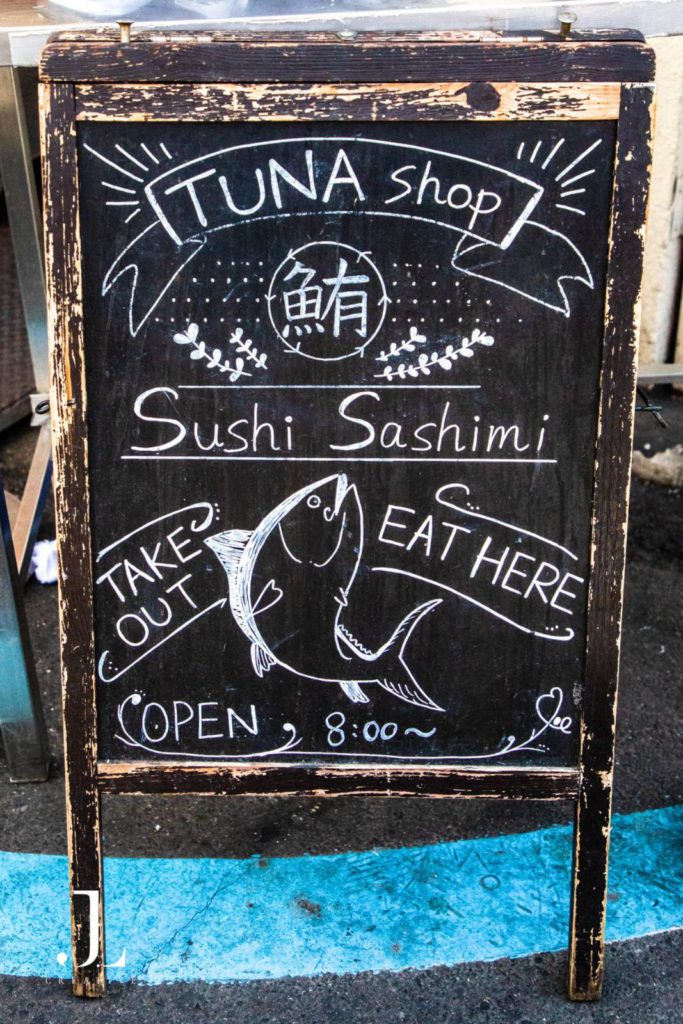 TUNA shop
鮪
Sushi Sashimi
TAKE
OUT
EAT HERE
OPEN 8:00~
.JL